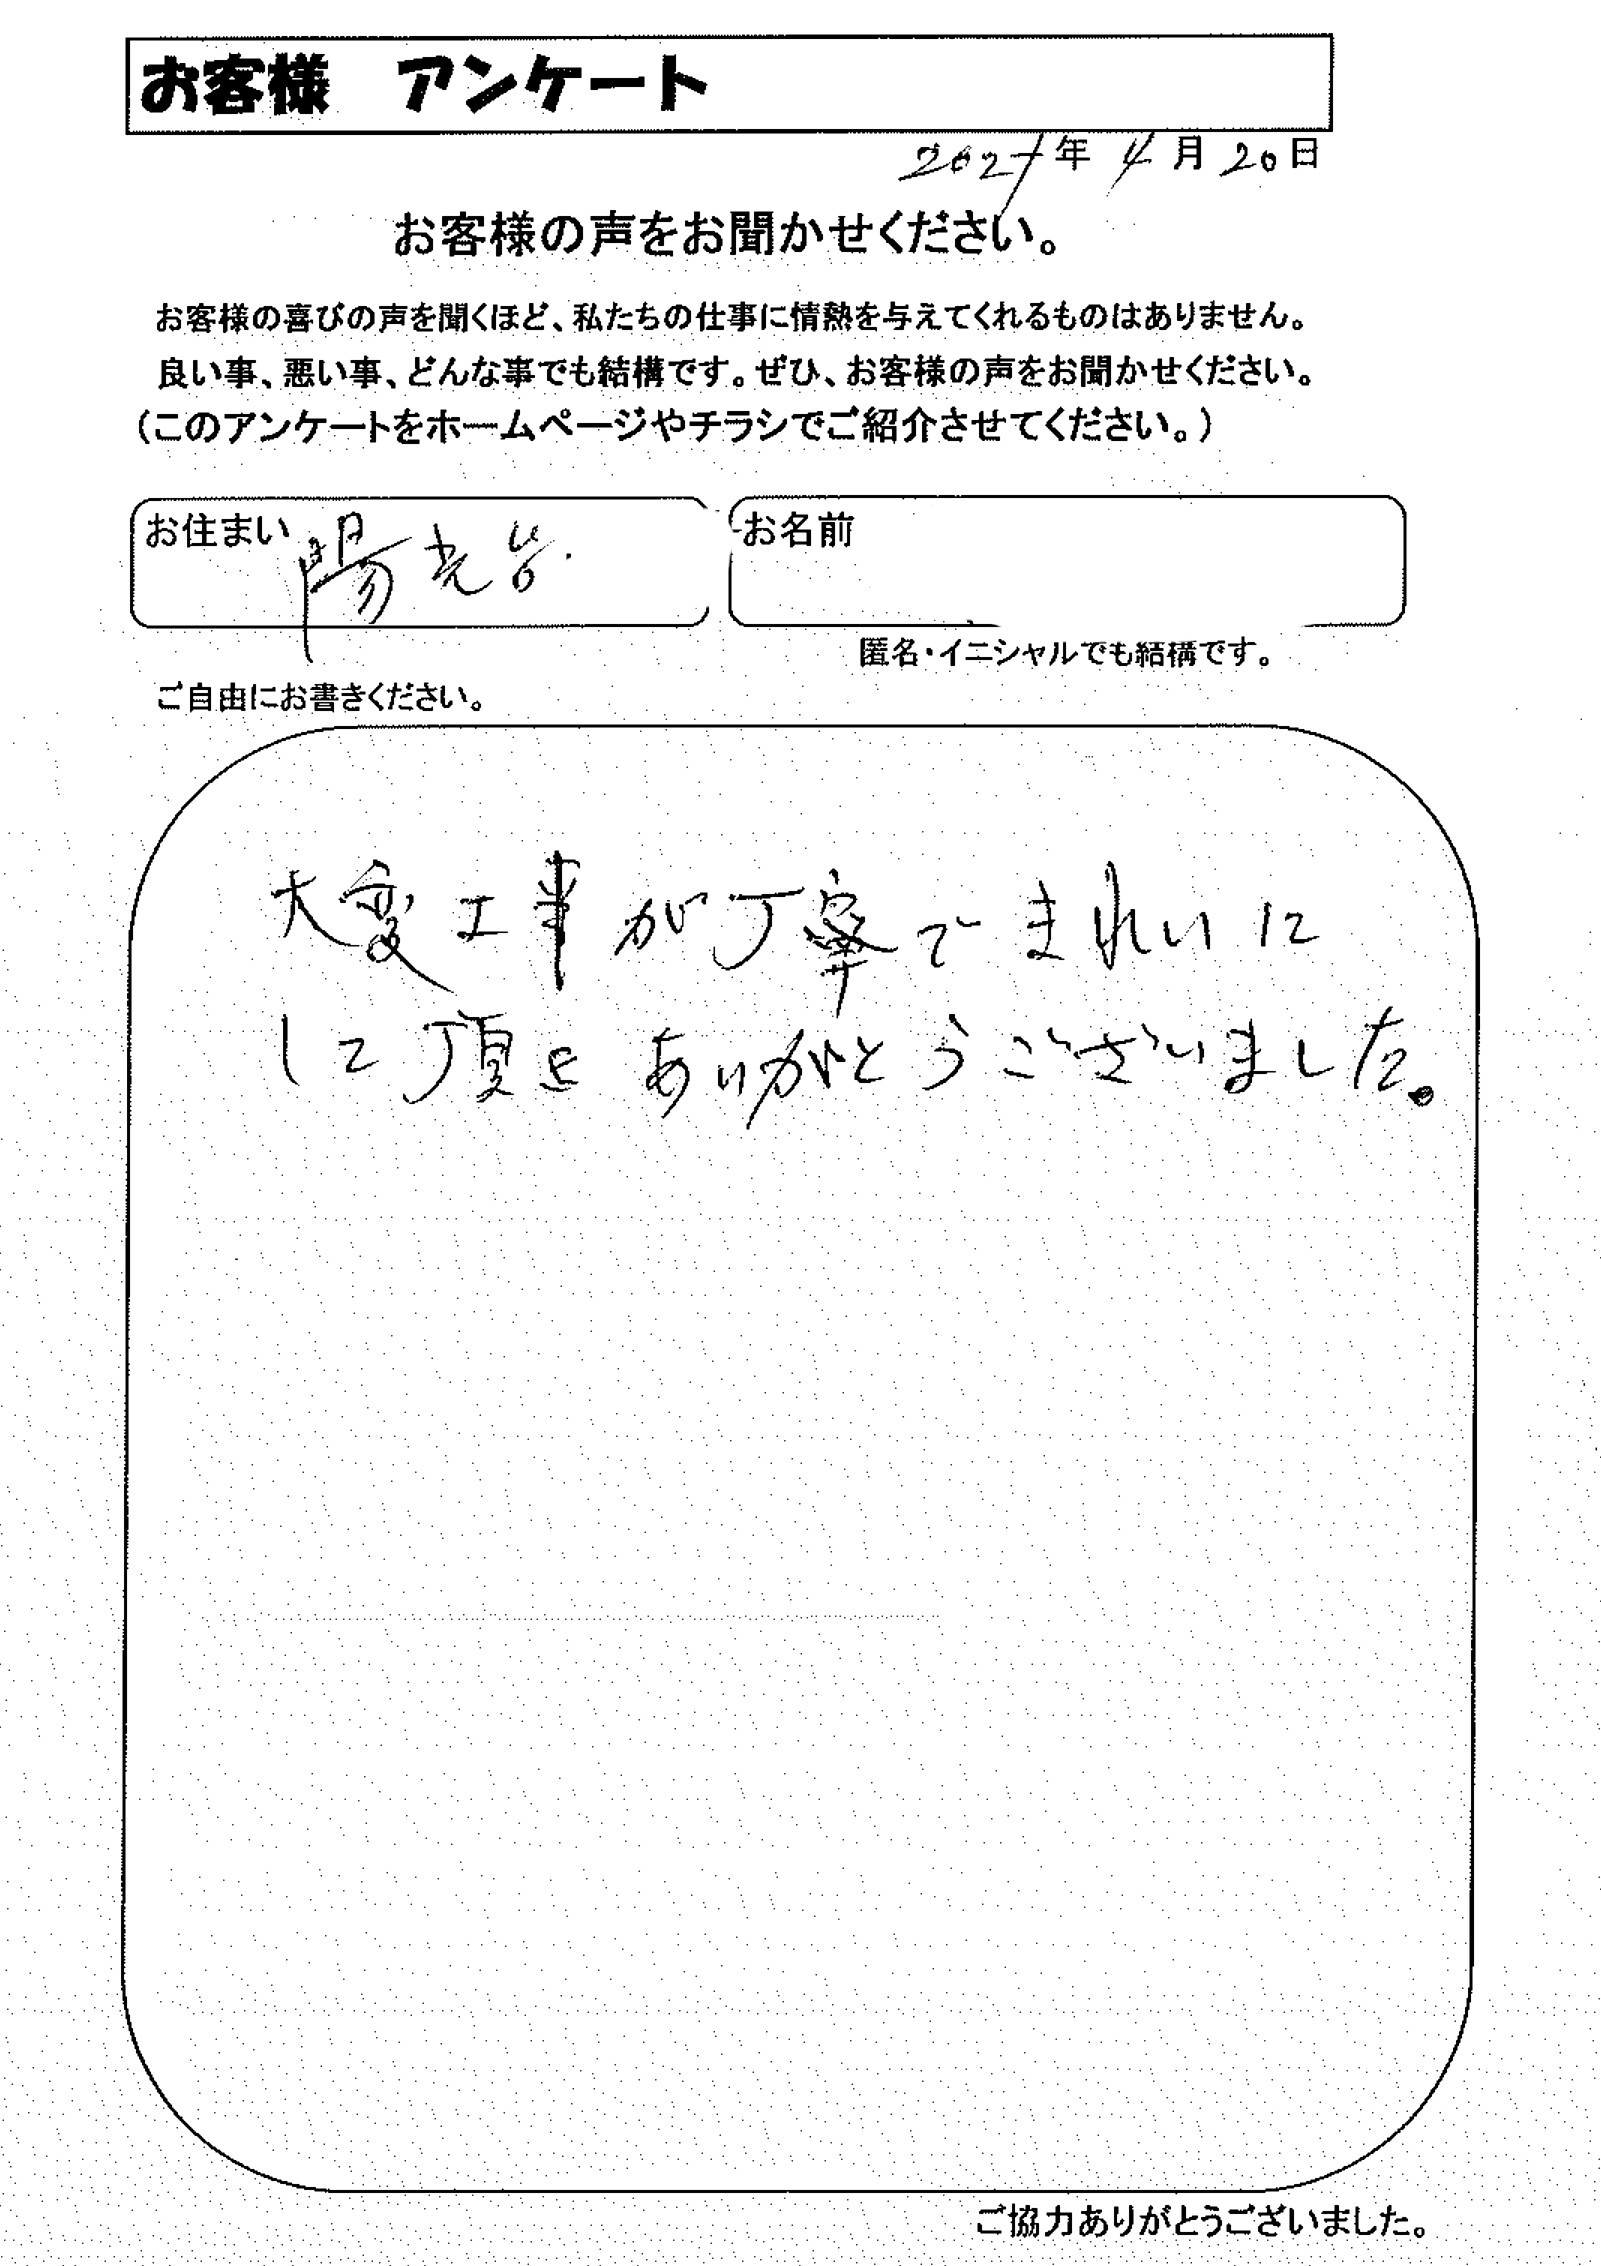 お客様　アンケート
2021年 4月 20日
お客様の声をお聞かせください。
お客様の喜びの声を聞くほど、私たちの仕事に情熱を与えてくれるものはありません。
良い事、悪い事、どんな事でも結構です。ぜひ、お客様の声をお聞かせください。
（このアンケートをホームページやチラシでご紹介させてください。）
お住まい 陽光台.
お名前
匿名・イニシャルでも結構です。
ご自由にお書きください。
大変工事が丁寧できれいに
して頂き ありがとうございました。
ご協力ありがとうございました。